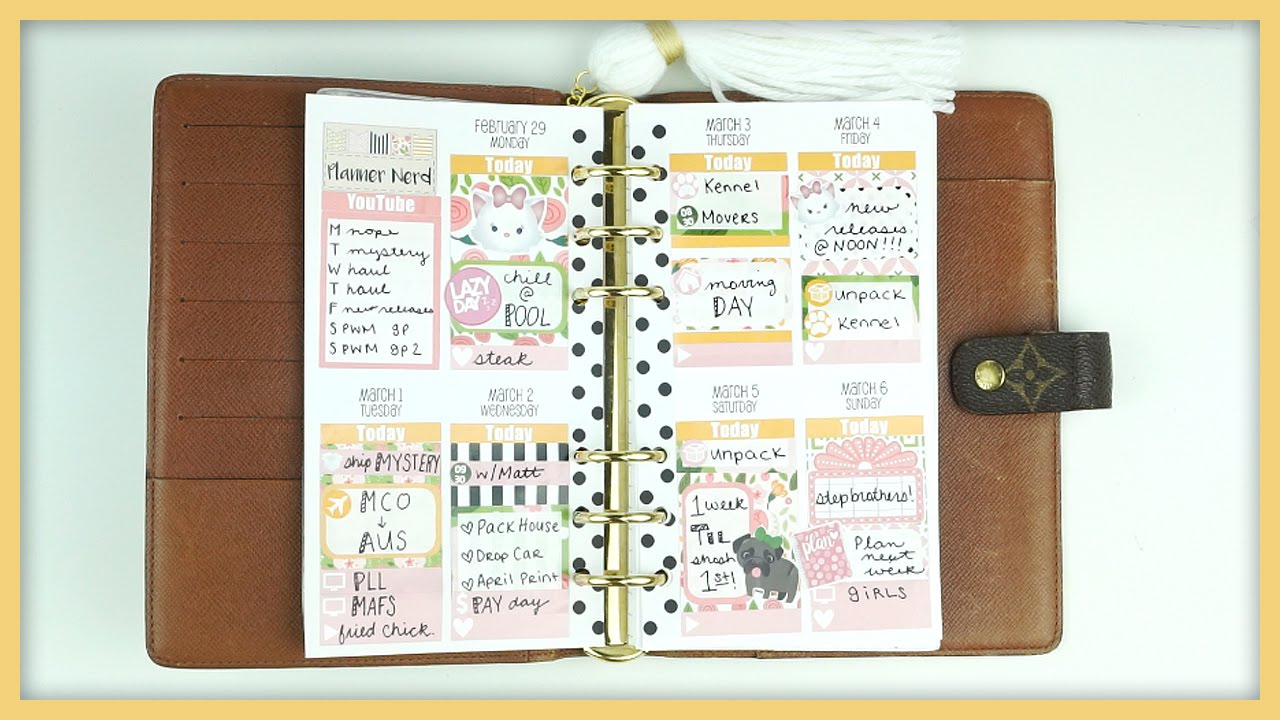 Planner Nerd
YouTube
M nope
T mystery
W haul
T haul
F new releases
S PWM gp
S PWM gp 2
FEBRUARY 29
MONDAY
Today
LAZY
DAY
chill
@
POOL
steak
MARCH 1
TUESDAY
Today
ship MYSTERY
MCO
↓
AUS
PLL
MAFS
fried chick.
MARCH 2
WEDNESDAY
Today
09
30
w/Matt
Pack House
Drop Car
April Print
$ PAY day
MARCH 3
THURSDAY
Today
Kennel
08
30
Movers
moving
DAY
MARCH 4
FRIDAY
Today
new
releases
@ NOON!!!
unpack
Kennel
MARCH 5
SATURDAY
Today
unpack
1 week
TIL
shosh
1st!
MARCH 6
SUNDAY
Today
stepbrothers!
plan
Plan
next
week
GIRLS